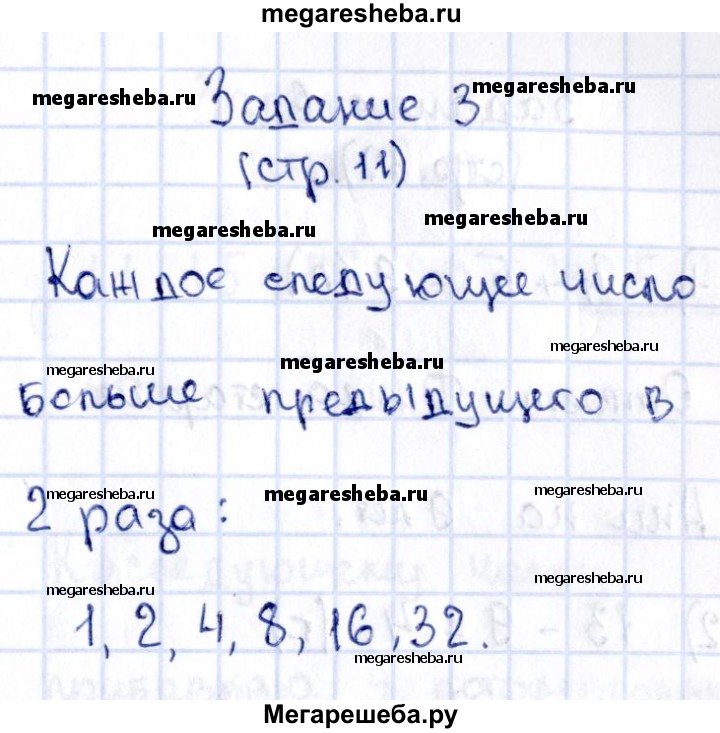 megaresheba.ru
megaresheba.ru
megaresheba.ru
Задание 3
(стр. 11)
megaresheba.ru
megaresheba.ru
Каждое следующее число
megaresheba.ru
megaresheba.ru
megaresheba.ru
больше предыдущего в
megaresheba.ru
megaresheba.ru
megaresheba.ru
2 раза:
megaresheba.ru
1, 2, 4, 8, 16, 32.
megaresheba.ru
Мегарешеба.ру